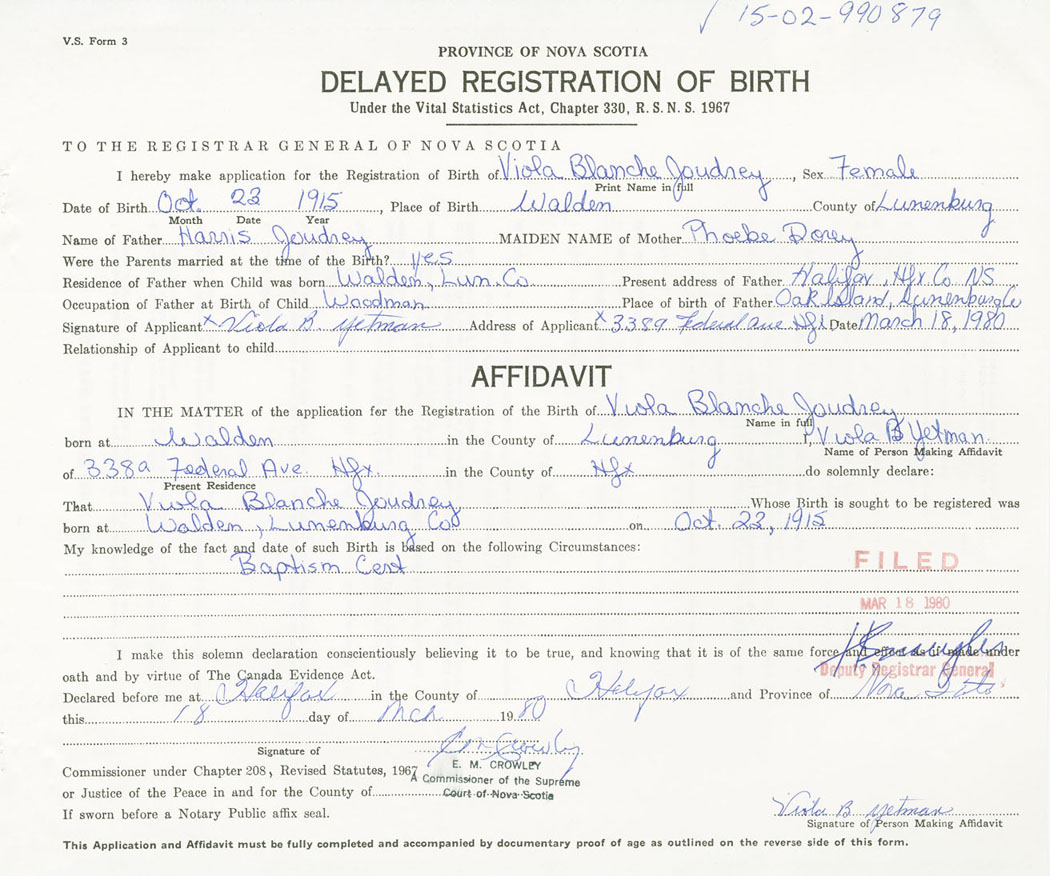 15-02-990879
V.S. Form 3
PROVINCE OF NOVA SCOTIA
DELAYED REGISTRATION OF BIRTH
Under the Vital Statistics Act, Chapter 330, R. S. N. S. 1967
TO THE REGISTRAR GENERAL OF NOVA SCOTIA
I hereby make application for the Registration of Birth of Viola Blanche Joudrey, Sex Female
Print Name in full
Date of Birth Oct. 23 1915, Place of Birth Walden County of Lunenburg
Month Date Year
Name of Father Harris Joudrey MAIDEN NAME of Mother Phoebe Dorey
Were the Parents married at the time of the Birth? yes
Residence of Father when Child was born Walden, Lun. Co Present address of Father Halifax, Hfx Co NS
Occupation of Father at Birth of Child Woodman Place of birth of Father Oak Island, Lunenburg Co
Signature of Applicant x Viola B. Yetman Address of Applicant x 3389 Federal Ave Hfx Date March 18, 1980
Relationship of Applicant to child
AFFIDAVIT
IN THE MATTER of the application for the Registration of the Birth of Viola Blanche Joudrey
Name in full
born at Walden in the County of Lunenburg I, Viola B Yetman
Name of Person Making Affidavit
of 3389 Federal Ave. Hfx. in the County of Hfx do solemnly declare:
Present Residence
That Viola Blanche Joudrey Whose Birth is sought to be registered was
born at Walden, Lunenburg Co on Oct. 23, 1915
My knowledge of the fact and date of such Birth is based on the following Circumstances:
Baptism Cert
FILED
MAR 18 1980
I make this solemn declaration conscientiously believing it to be true, and knowing that it is of the same force and effect as if made under
Deputy Registrar General
oath and by virtue of The Canada Evidence Act.
Declared before me at Halifax in the County of Halifax and Province of Nova Scotia
this 18 day of Mch 1980
Signature of
E. M. CROWLEY
Commissioner under Chapter 208, Revised Statutes, 1967
A Commissioner of the Supreme
or Justice of the Peace in and for the County of
Court of Nova Scotia
If sworn before a Notary Public affix seal.
Viola B Yetman
Signature of Person Making Affidavit
This Application and Affidavit must be fully completed and accompanied by documentary proof of age as outlined on the reverse side of this form.